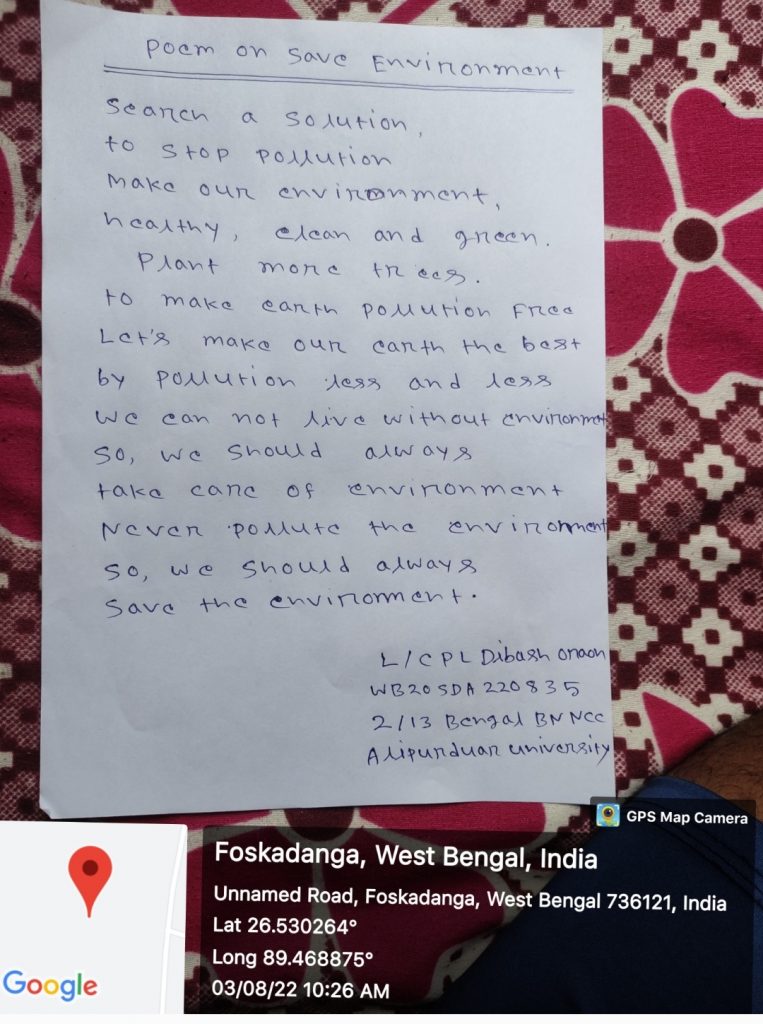 Poem on Save Environment
Search a solution,
to stop pollution
Make our environment,
healthy, clean and green.
Plant more trees.
to make earth pollution Free
Let's make our earth the best
by pollution less and less
We can not live without environment
So, we should always
take care of environment
Never pollute the environment
So, we should always
Save the environment.
L/CPL Dibash Oraon
WB20SDA220835
2/13 Bengal BN NCC
Alipurduar University
GPS Map Camera
Foskadanga, West Bengal, India
Unnamed Road, Foskadanga, West Bengal 736121, India
Lat 26.530264°
Long 89.468875°
03/08/22 10:26 AM
Google